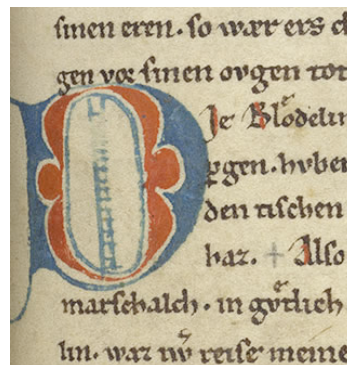 sinen eren. so wær ers d
gen vor sinen ovgen tot
Die Blodelin
ꝑgen. hvben
den tischen
har. + Also
marschalch. in gvtlich
lin. waz iwͦ reise meine